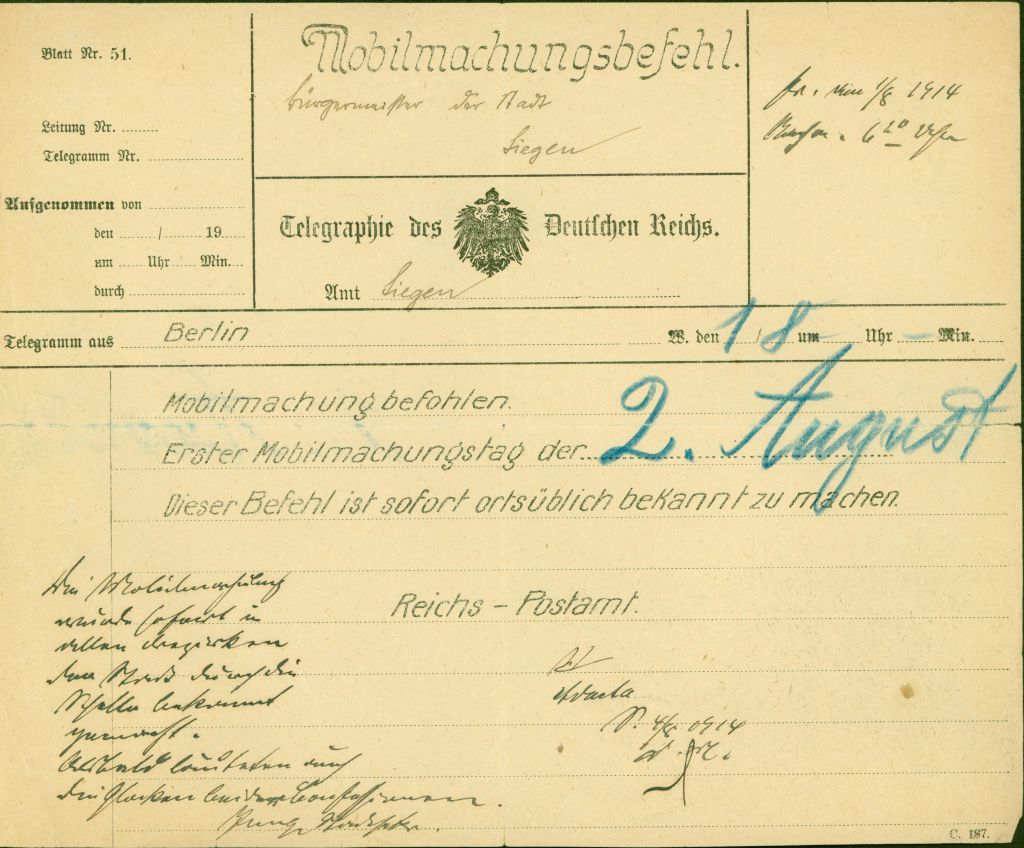 Blatt Nr. 51.
Leitung Nr.
Telegramm Nr.
Aufgenommen von
den / 19
um Uhr Min.
durch
Mobilmachungsbefehl.
Bürgermeister der Stadt
Siegen
Telegraphie des Deutschen Reichs.
Amt Siegen
pr. vom 1/8 1914
6 20 Uhr
Telegramm aus Berlin W. den 1/8 um Uhr - Min.
Mobilmachung befohlen.
Erster Mobilmachungstag der 2. August
Dieser Befehl ist sofort ortsüblich bekannt zu machen.
Reichs - Postamt.
Die Mobilmachung
wurde sofort in
allen Bezirken
der Stadt durch die
Schelle bekannt
gemacht.
Alsbald läuteten auch
die Glocken beider Konfessionen.
Adacta
S. 4/8. 1914
C. 187.